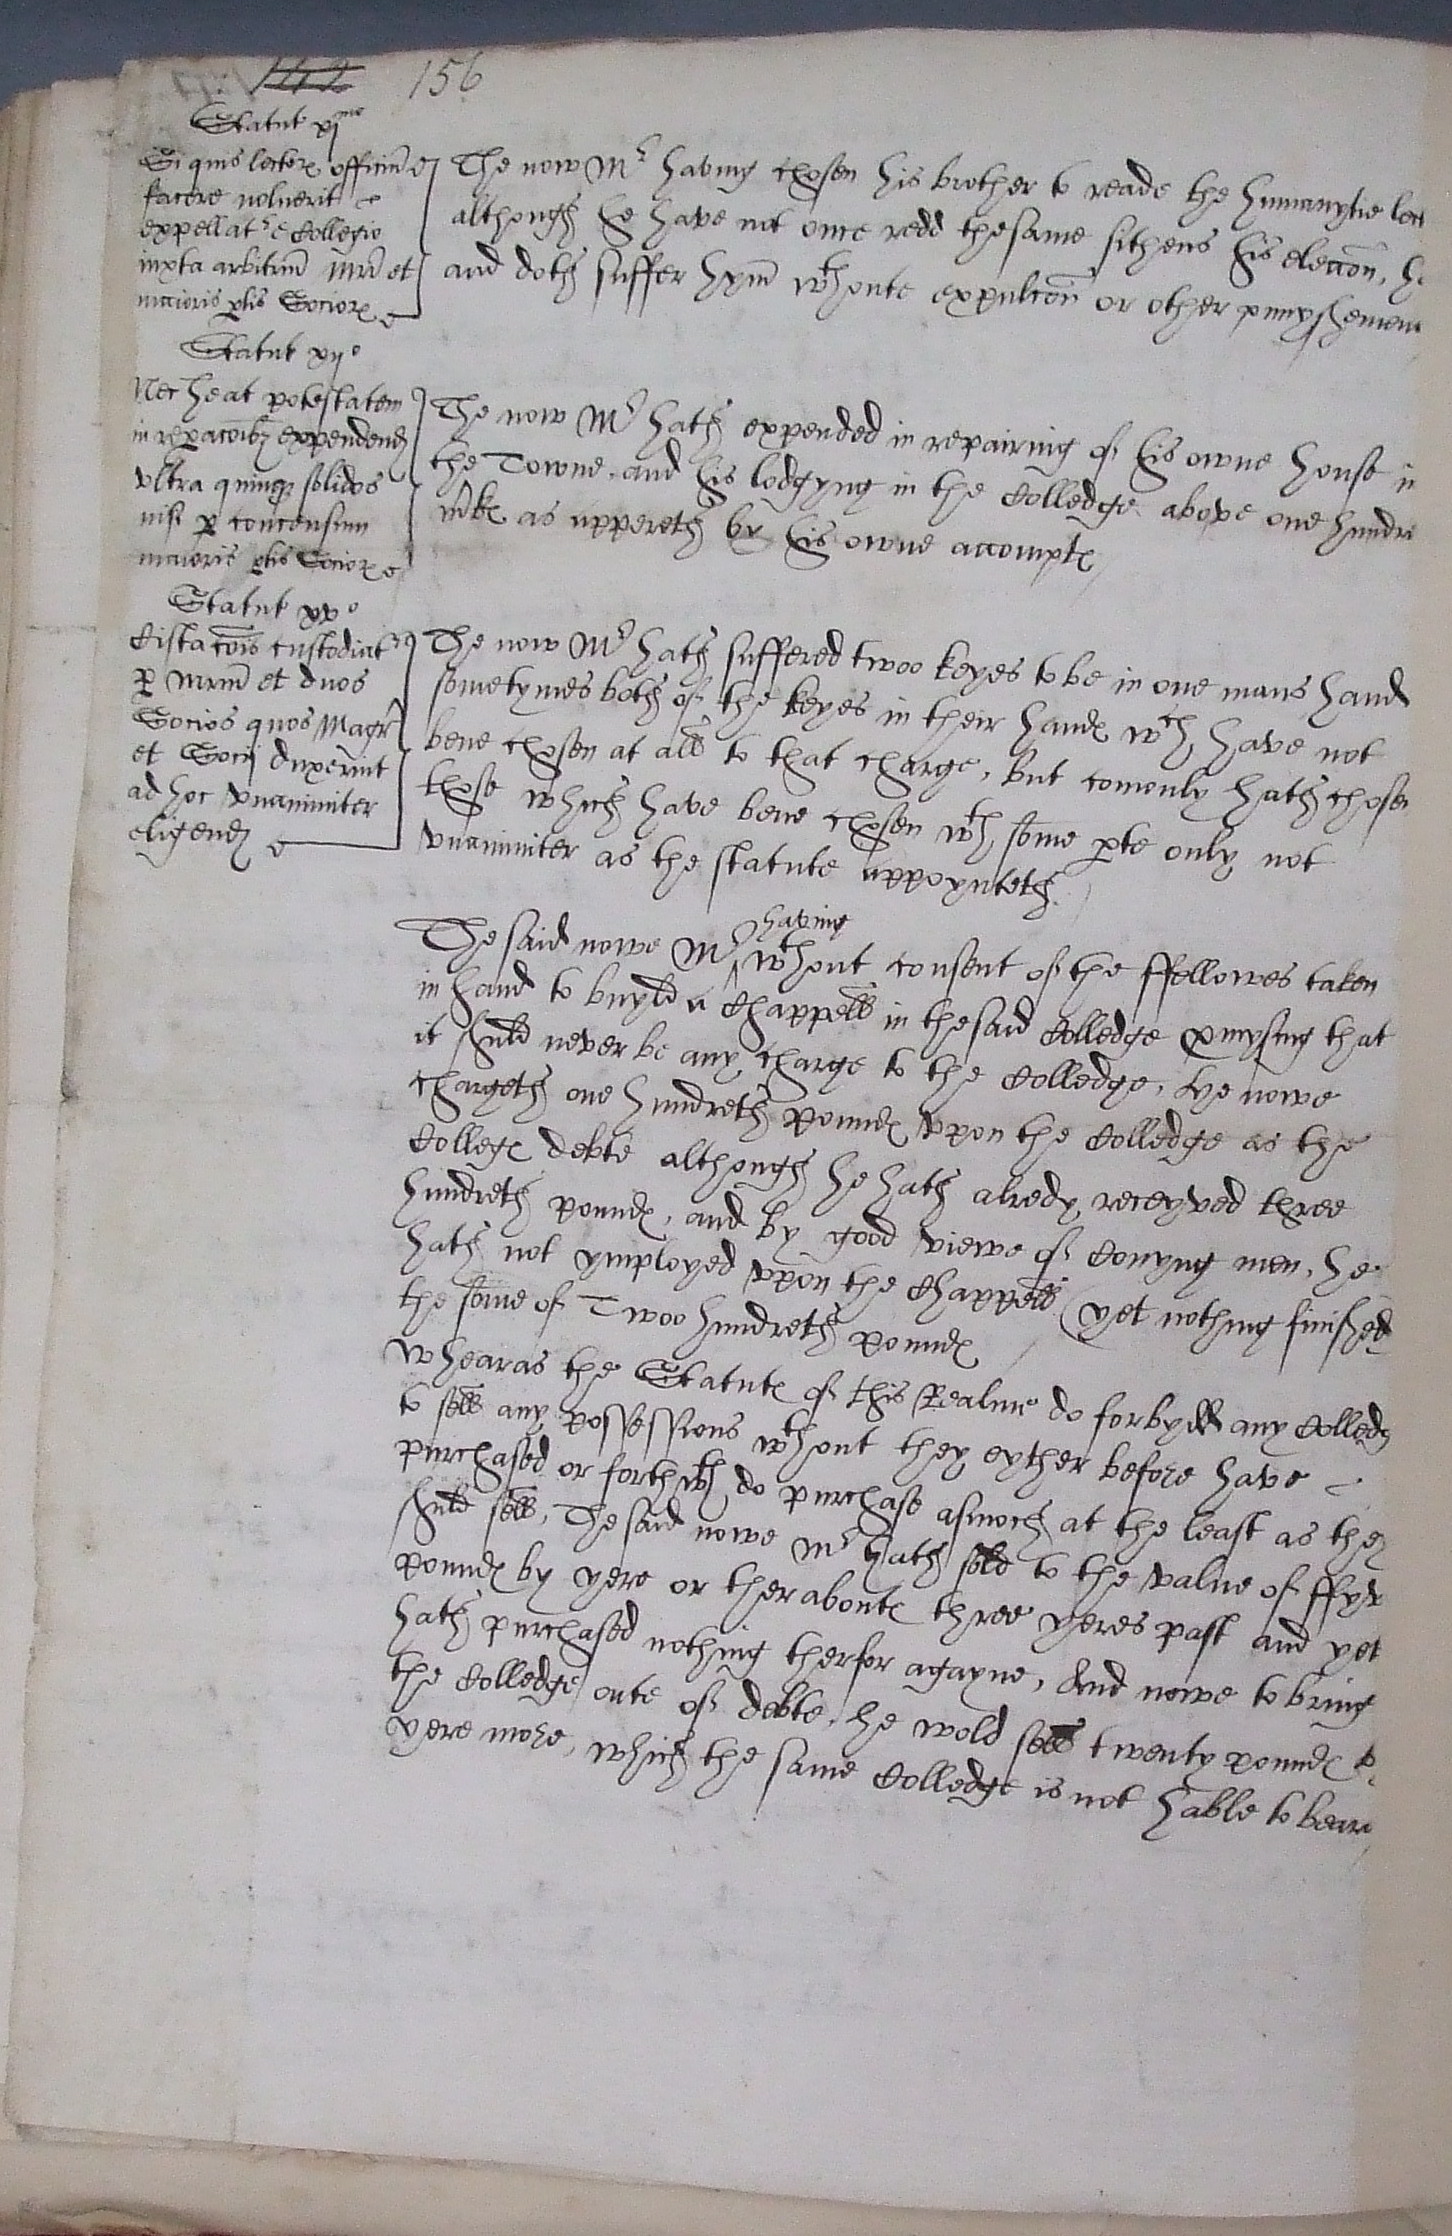 142 156
Statut xj mo
Si quis lector officiu
facere noluerit
expellatr e Collegio
iuxta arbitriu Mri et
maioris ptis Socior
The now Mr having chosen his brother to reade the humanytie lect
although he have not once redd thesame sithens his eleccon, he
and doth suffer hym wthoute expulcon or other punyshement
Statut xijo
Nec heat potestatem
in repacoibz expendend
ultra quinqz solidos
nisi p concensum
maioris ptis Socior
The now Mr hath expended in repairing of his owne house in
the Towne, and his lodgyng in the Colledge above one hundre
mks as appereth by his owne accompts
Statut xvo
Cista cois custodiatr
p Mrm et duos
Socios quos Magr
et Socij duxerint
ad hoc unanimiter
eligend
The now Mr hath suffered twoo keyes to be in one mans hand
sometymes both of the keyes in their hands wch have not
bene chosen at all to that charge, But comonly hath chosen
those which have bene chosen wth some pte only not
unanimiter as the statute appoynteth.
having
The said nowe Mr wthout consent of the ffellowes taken
in hand to buyld a Chappell in thesaid Colledge pmysing that
it shuld never be any charge to the Colledge, he nowe
chargeth one hundreth pounds upon the Colledge as the
Colleges debte although he hath alredy receyved three
hundreth pounds, and by good viewe of Conyng men, he
hath not ymployed upon the Chappell (yet nothing finished
the some of Twoo hundreth pounds
Whearas the Statuts of this Realme do forbydd any Colledg
to sell any possessions wthout they eyther before have
purchased or forthwth do purchase asmoch at the least as they
shuld sell, The said nowe Mr hath sold to the value of ffyv
pounds by yere or therabouts three yeres past and yet
hath purchased nothing therfor agayne, And nowe to bring
the Colledge oute of debte, he wold sell twenty pounds
yere more, which the same Colledge is not hable to beare